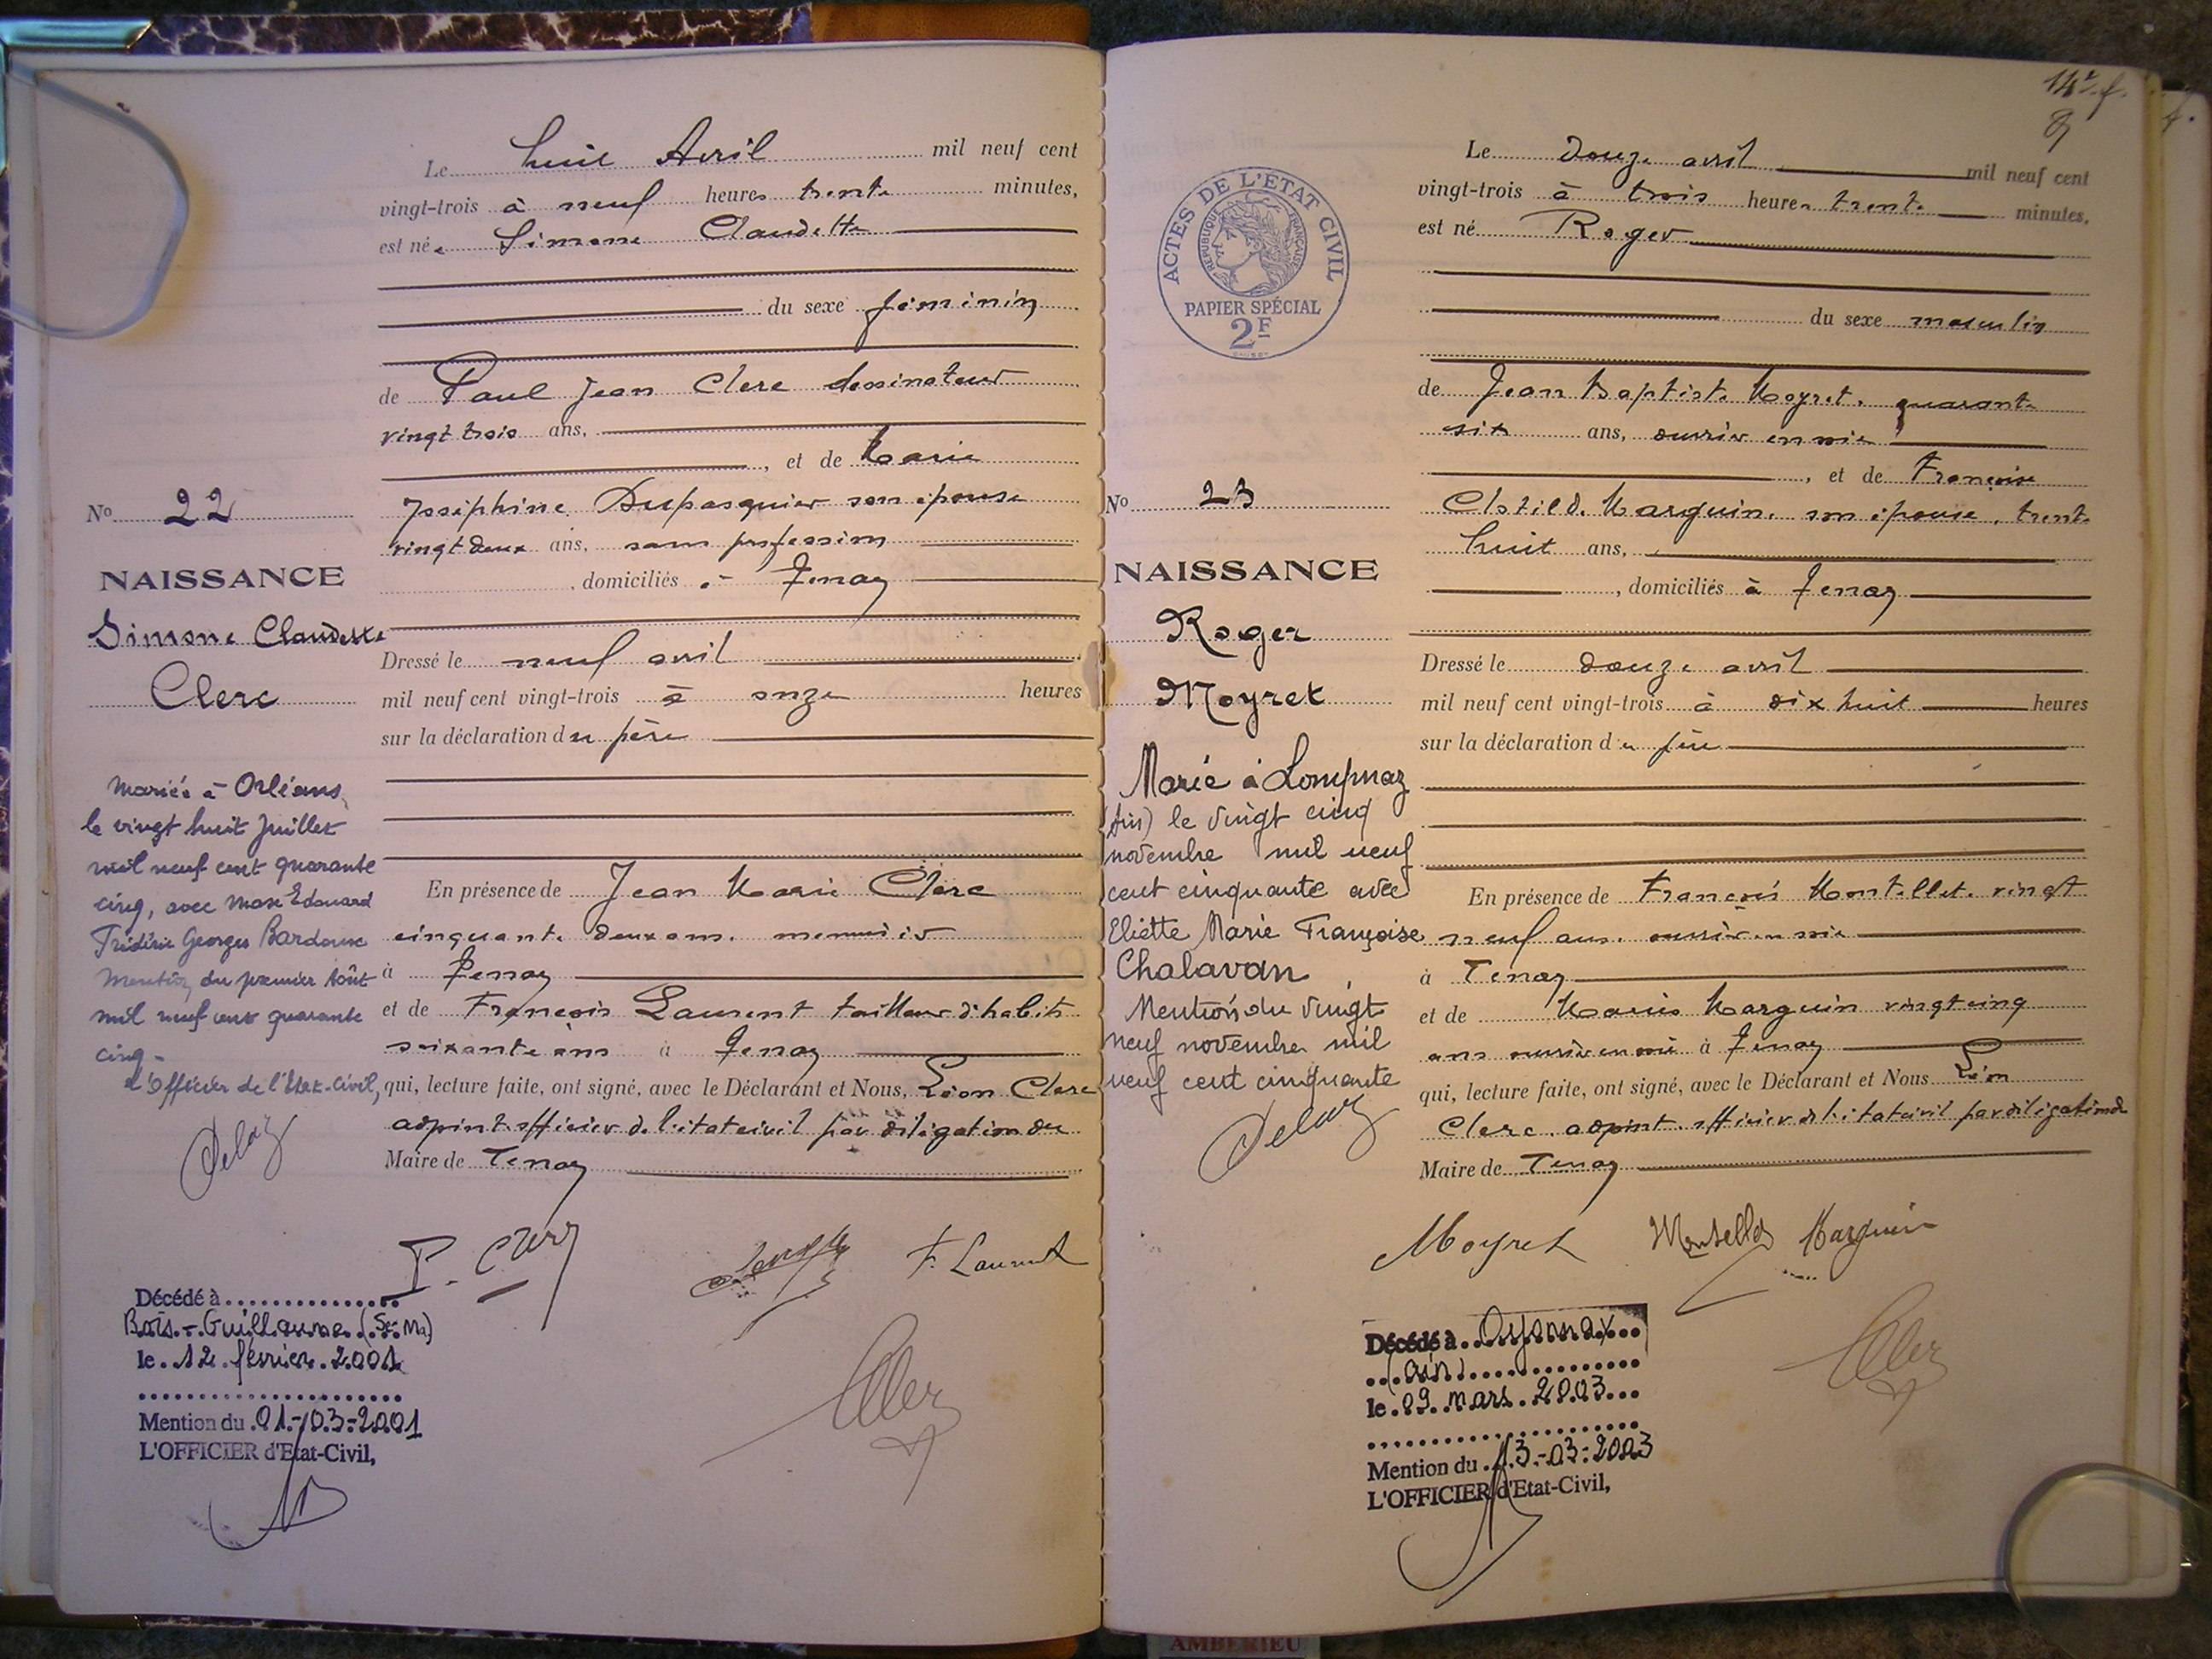 Le huit Avril mil neuf cent
vingt-trois à neuf heures trente minutes,
est née Simone Claudette
du sexe féminin
de Paul Jean Clerc dessinateur
vingt trois ans,
, et de Marie
Joséphine Dupasquier son épouse
vingt deux ans, sans profession
, domiciliés à Tenay
Dressé le neuf avril
mil neuf cent vingt-trois à onze heures
sur la déclaration du père
En présence de Jean Marie Clerc
cinquante deux ans, menuisier
à Tenay
et de François Laurent tailleur d'habits
soixante ans à Tenay
qui, lecture faite, ont signé, avec le Déclarant et Nous, Léon Clerc
adjoint officier de l'état civil par délégation du
Maire de Tenay
P. Clerc
F. Laurent
No 22
NAISSANCE
Simone Claudette
Clerc
Mariée à Orléans,
le vingt huit Juillet
mil neuf cent quarante
cinq, avec Max Edouard
Frédéric Georges Bardoux
Mention du premier Août
mil neuf cent quarante
cinq -
L'Officier de l'Etat-Civil,
Delay
Décédé à
Bois-Guillaume (Se-Ma)
le 12 février 2001
Mention du 01-03-2001
L'OFFICIER d'Etat-Civil,
14e f.
ACTES DE L'ETAT CIVIL
REPUBLIQUE FRANÇAISE
PAPIER SPÉCIAL
2F
Le douze avril mil neuf cent
vingt-trois à trois heures trente minutes,
est né Roger
du sexe masculin
de Jean Baptiste Moyret, quarante
six ans, ouvrier en soie
, et de Françoise
Clotilde Marguin, son épouse, trente
huit ans,
, domiciliés à Tenay
Dressé le douze avril
mil neuf cent vingt-trois à dix huit heures
sur la déclaration du père
En présence de François Montellet, vingt
neuf ans, ouvrier en soie
à Tenay
et de Marius Marguin vingt cinq
ans ouvrier en soie à Tenay
qui, lecture faite, ont signé, avec le Déclarant et Nous Léon
Clerc, adjoint officier de l'état civil par délégation du
Maire de Tenay
Moyret Montellet Marguin
No 23
NAISSANCE
Roger
Moyret
Marié à Lompnaz
(Ain) le vingt cinq
novembre mil neuf
cent cinquante avec
Eliette Marie Françoise
Chalavan
Mention du vingt
neuf novembre mil
neuf cent cinquante
Delay
Décédé à Oyonnax
(Ain)
le 09 mars 2003
Mention du 13-03-2003
L'OFFICIER d'Etat-Civil,
AMBERIEU